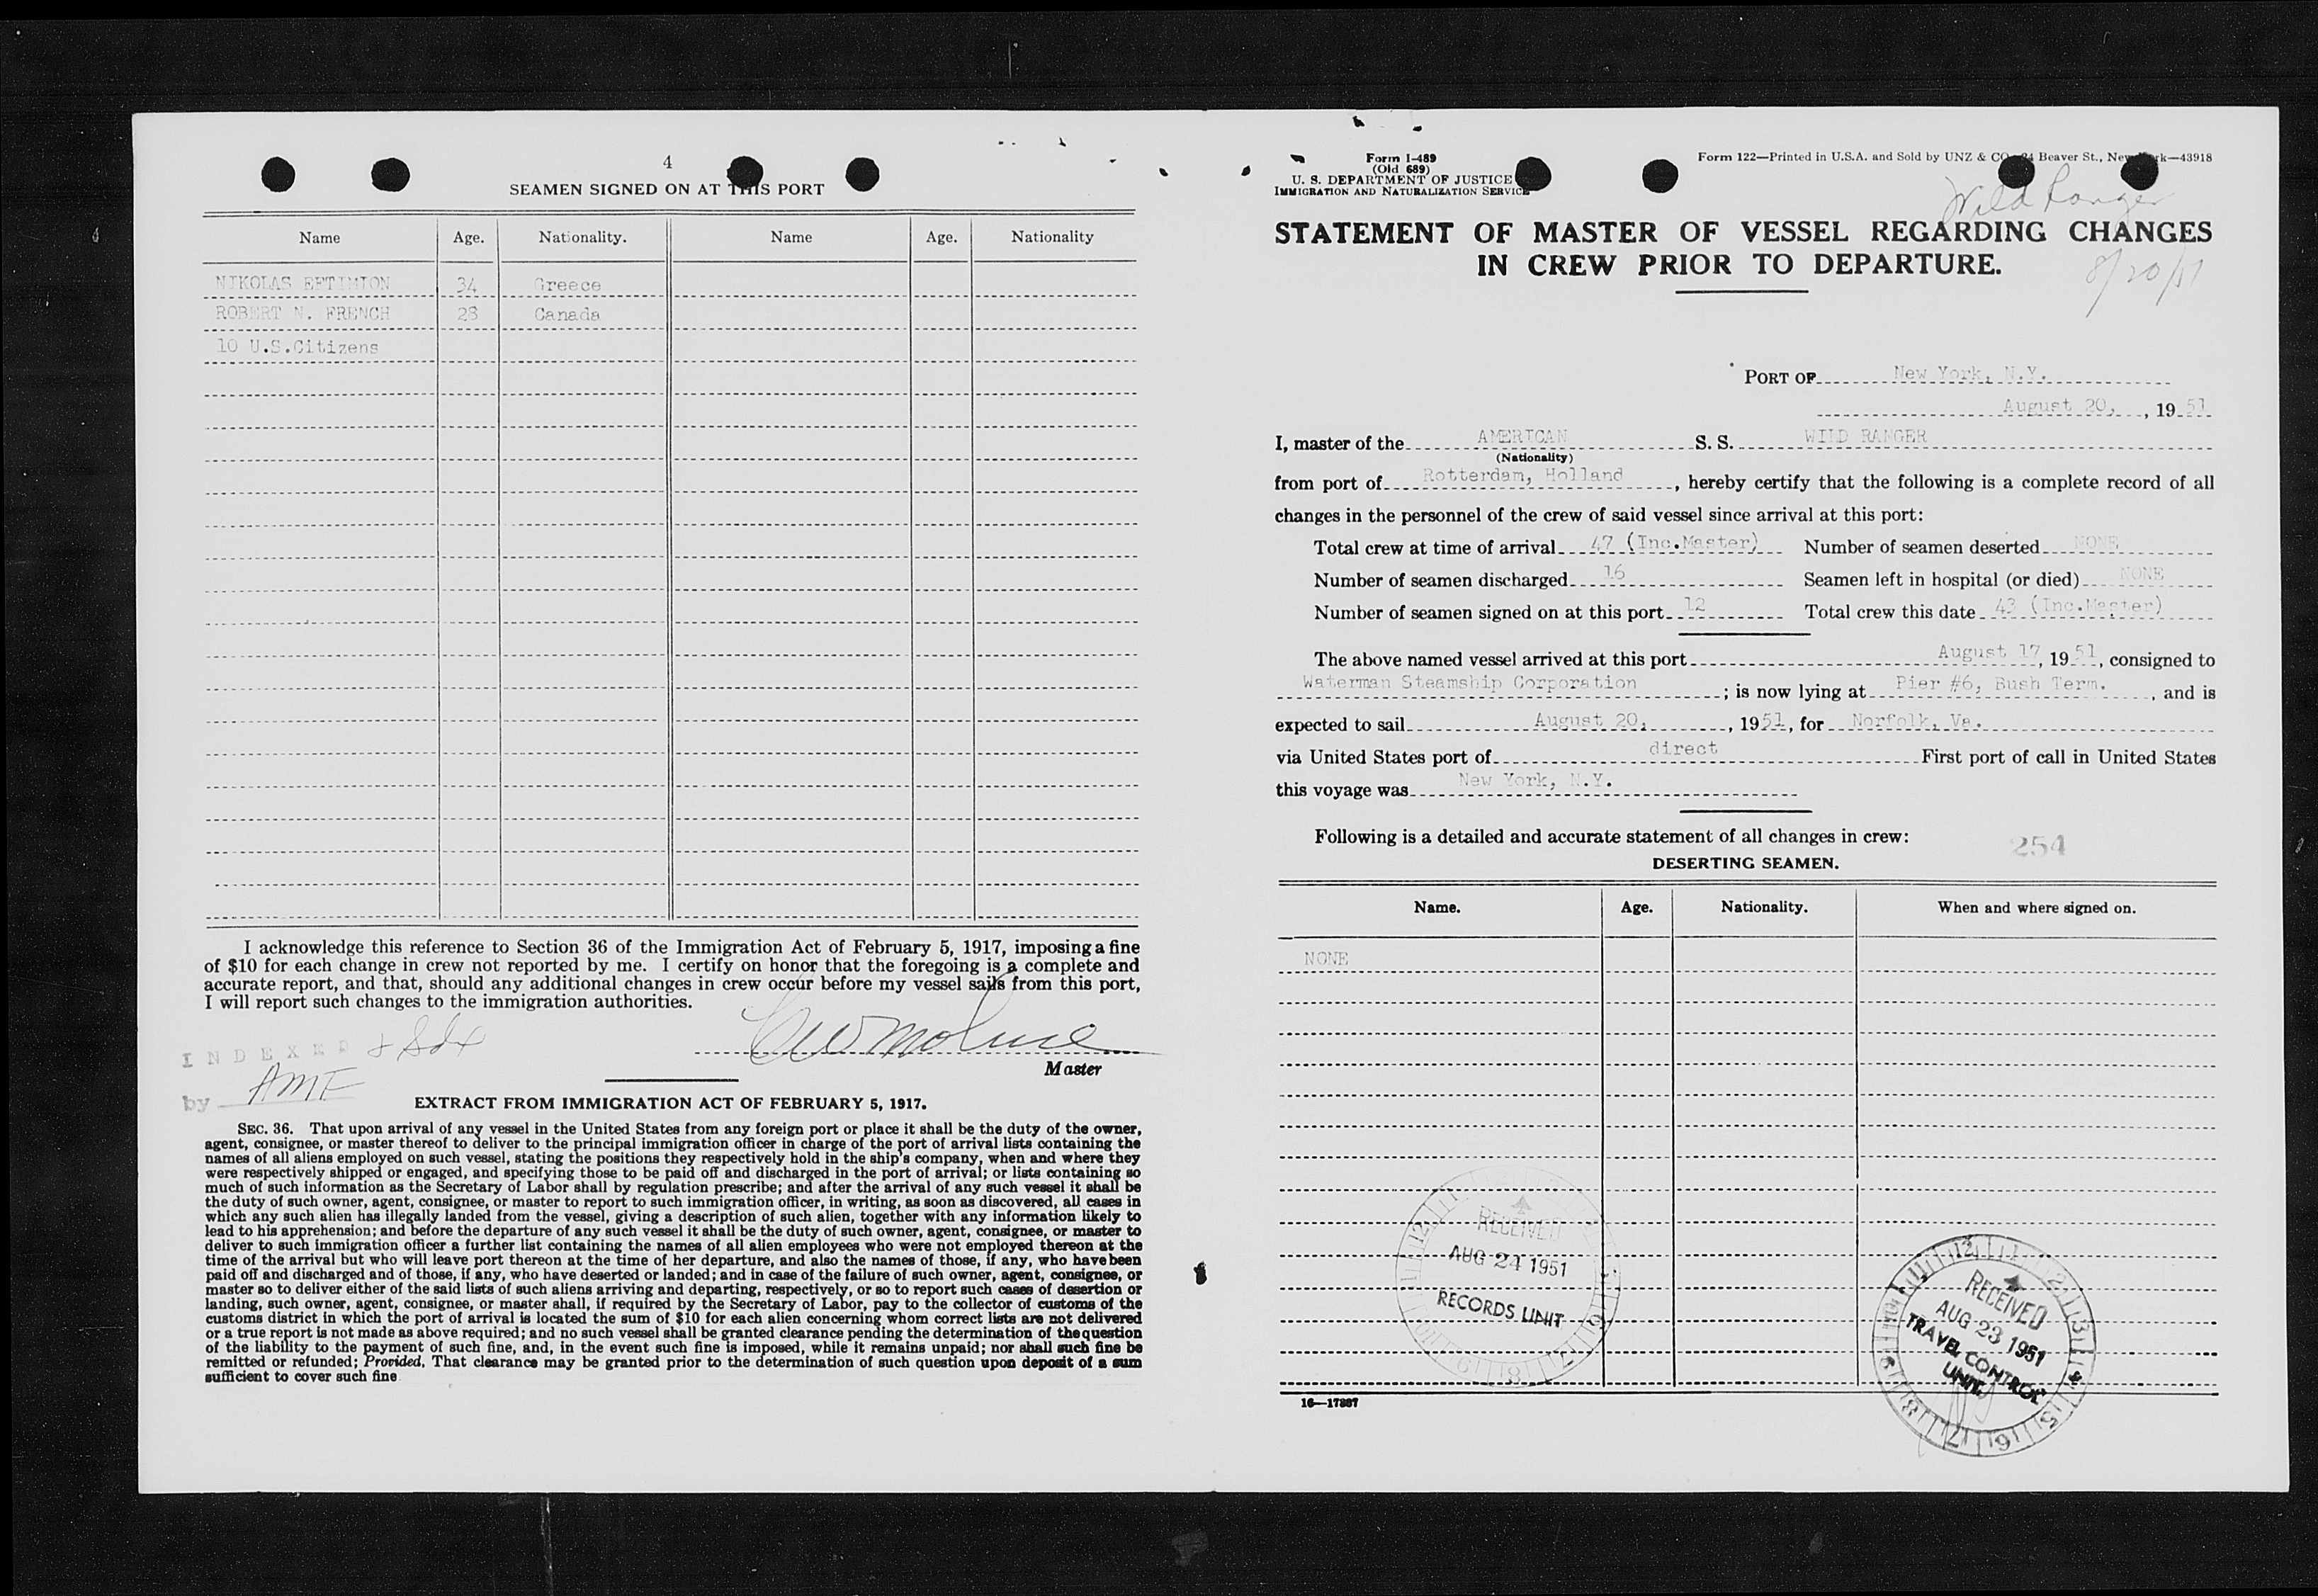 4
SEAMEN SIGNED ON AT THIS PORT
Name Age. Nationality. Name Age. Nationality
NIKOLAS EFTIMION 34 Greece
ROBERT N. FRENCH 28 Canada
10 U.S.Citizens
I acknowledge this reference to Section 36 of the Immigration Act of February 5, 1917, imposing a fine
of $10 for each change in crew not reported by me. I certify on honor that the foregoing is a complete and
accurate report, and that, should any additional changes in crew occur before my vessel sails from this port,
I will report such changes to the immigration authorities.
INDEXED
Master
by AMF
EXTRACT FROM IMMIGRATION ACT OF FEBRUARY 5, 1917.
SEC. 36. That upon arrival of any vessel in the United States from any foreign port or place it shall be the duty of the owner,
agent, consignee, or master thereof to deliver to the principal immigration officer in charge of the port of arrival lists containing the
names of all aliens employed on such vessel, stating the positions they respectively hold in the ship's company, when and where they
were respectively shipped or engaged, and specifying those to be paid off and discharged in the port of arrival; or lists containing so
much of such information as the Secretary of Labor shall by regulation prescribe; and after the arrival of any such vessel it shall be
the duty of such owner, agent, consignee, or master to report to such immigration officer, in writing, as soon as discovered, all cases in
which any such alien has illegally landed from the vessel, giving a description of such alien, together with any information likely to
lead to his apprehension; and before the departure of any such vessel it shall be the duty of such owner, agent, consignee, or master to
deliver to such immigration officer a further list containing the names of all alien employees who were not employed thereon at the
time of the arrival but who will leave port thereon at the time of her departure, and also the names of those, if any, who have been
paid off and discharged and of those, if any, who have deserted or landed; and in case of the failure of such owner, agent, consignee, or
master so to deliver either of the said lists of such aliens arriving and departing, respectively, or so to report such cases of desertion or
landing, such owner, agent, consignee, or master shall, if required by the Secretary of Labor, pay to the collector of customs of the
customs district in which the port of arrival is located the sum of $10 for each alien concerning whom correct lists are not delivered
or a true report is not made as above required; and no such vessel shall be granted clearance pending the determination of the question
of the liability to the payment of such fine, and, in the event such fine is imposed, while it remains unpaid; nor shall such fine be
remitted or refunded; Provided, That clearance may be granted prior to the determination of such question upon deposit of a sum
sufficient to cover such fine
Form I-489
(Old 689)
U. S. DEPARTMENT OF JUSTICE
IMMIGRATION AND NATURALIZATION SERVICE
Form 122—Printed in U.S.A. and Sold by UNZ & CO., 24 Beaver St., New York—43918
Wild Ranger
STATEMENT OF MASTER OF VESSEL REGARDING CHANGES
IN CREW PRIOR TO DEPARTURE.
8/20/51
PORT OF New York, N.Y.
August 20, , 1951
I, master of the AMERICAN S. S. WILD RANGER
(Nationality)
from port of Rotterdam, Holland , hereby certify that the following is a complete record of all
changes in the personnel of the crew of said vessel since arrival at this port:
Total crew at time of arrival 47 (Inc.Master) Number of seamen deserted NONE
Number of seamen discharged 16 Seamen left in hospital (or died) NONE
Number of seamen signed on at this port 12 Total crew this date 43 (Inc.Master)
The above named vessel arrived at this port August 17, 1951, consigned to
Waterman Steamship Corporation ; is now lying at Pier #6, Bush Term. , and is
expected to sail August 20, , 1951, for Norfolk, Va.
via United States port of direct First port of call in United States
this voyage was New York, N.Y.
Following is a detailed and accurate statement of all changes in crew:
254
DESERTING SEAMEN.
Name. Age. Nationality. When and where signed on.
NONE
RECEIVED
AUG 24 1951
RECORDS UNIT
RECEIVED
AUG 23 1951
TRAVEL CONTROL
UNIT
16—17887